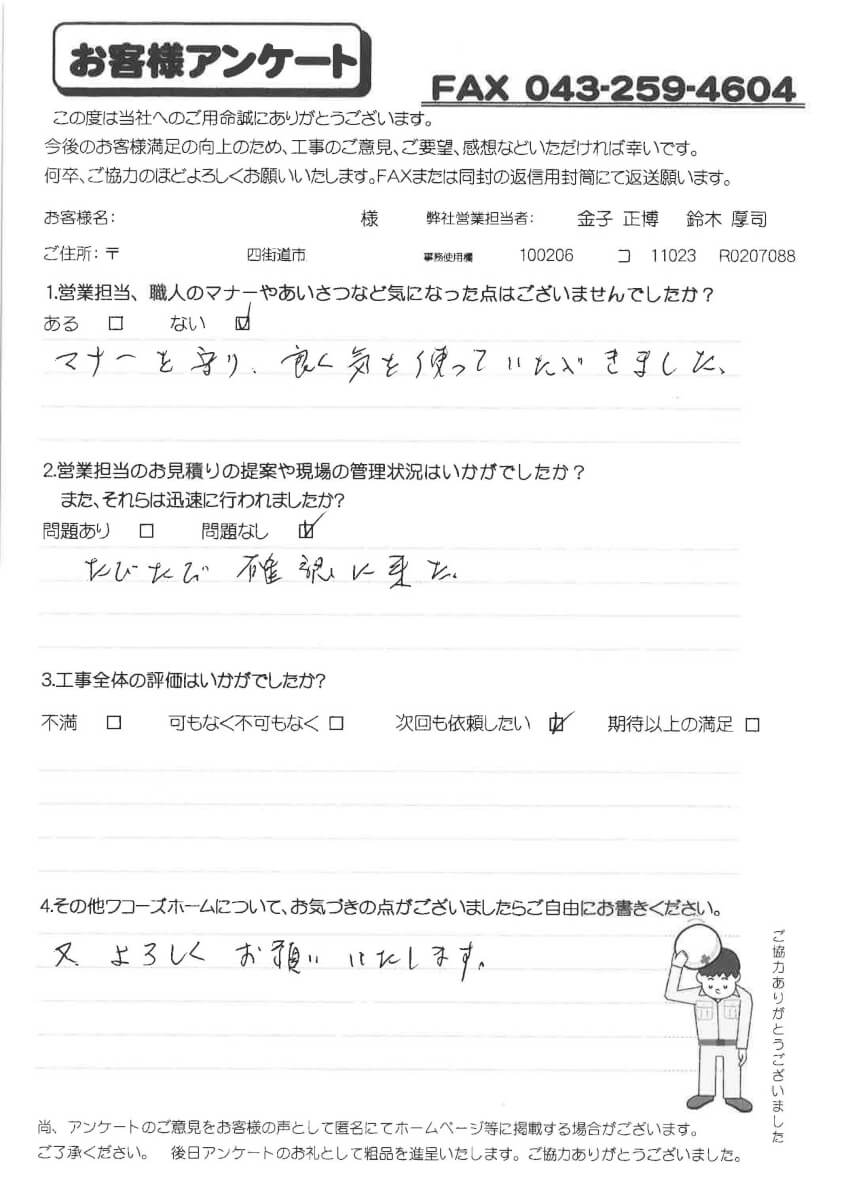 お客様アンケート
FAX 043-259-4604
この度は当社へのご用命誠にありがとうございます。
今後のお客様満足の向上のため、工事のご意見、ご要望、感想などいただければ幸いです。
何卒、ご協力のほどよろしくお願いいたします。FAXまたは同封の返信用封筒にて返送願います。
お客様名: 様 弊社営業担当者: 金子 正博 鈴木 厚司
ご住所:〒 四街道市 事務使用欄 100206 コ 11023 R0207088
1.営業担当、職人のマナーやあいさつなど気になった点はございませんでしたか？
ある □ ない ☑
マナーを守り、良く気を使っていただきました、
2.営業担当のお見積りの提案や現場の管理状況はいかがでしたか？
また、それらは迅速に行われましたか?
問題あり □ 問題なし ☑
たびたび 確認に来た。
3.工事全体の評価はいかがでしたか?
不満 □ 可もなく不可もなく □ 次回も依頼したい ☑ 期待以上の満足 □
4.その他ワコーズホームについて、お気づきの点がございましたらご自由にお書きください。
又、よろしく お願い いたします。
ご協力ありがとうございました
尚、アンケートのご意見をお客様の声として匿名にてホームページ等に掲載する場合がございます。
ご了承ください。 後日アンケートのお礼として粗品を進呈いたします。ご協力ありがとうございました。